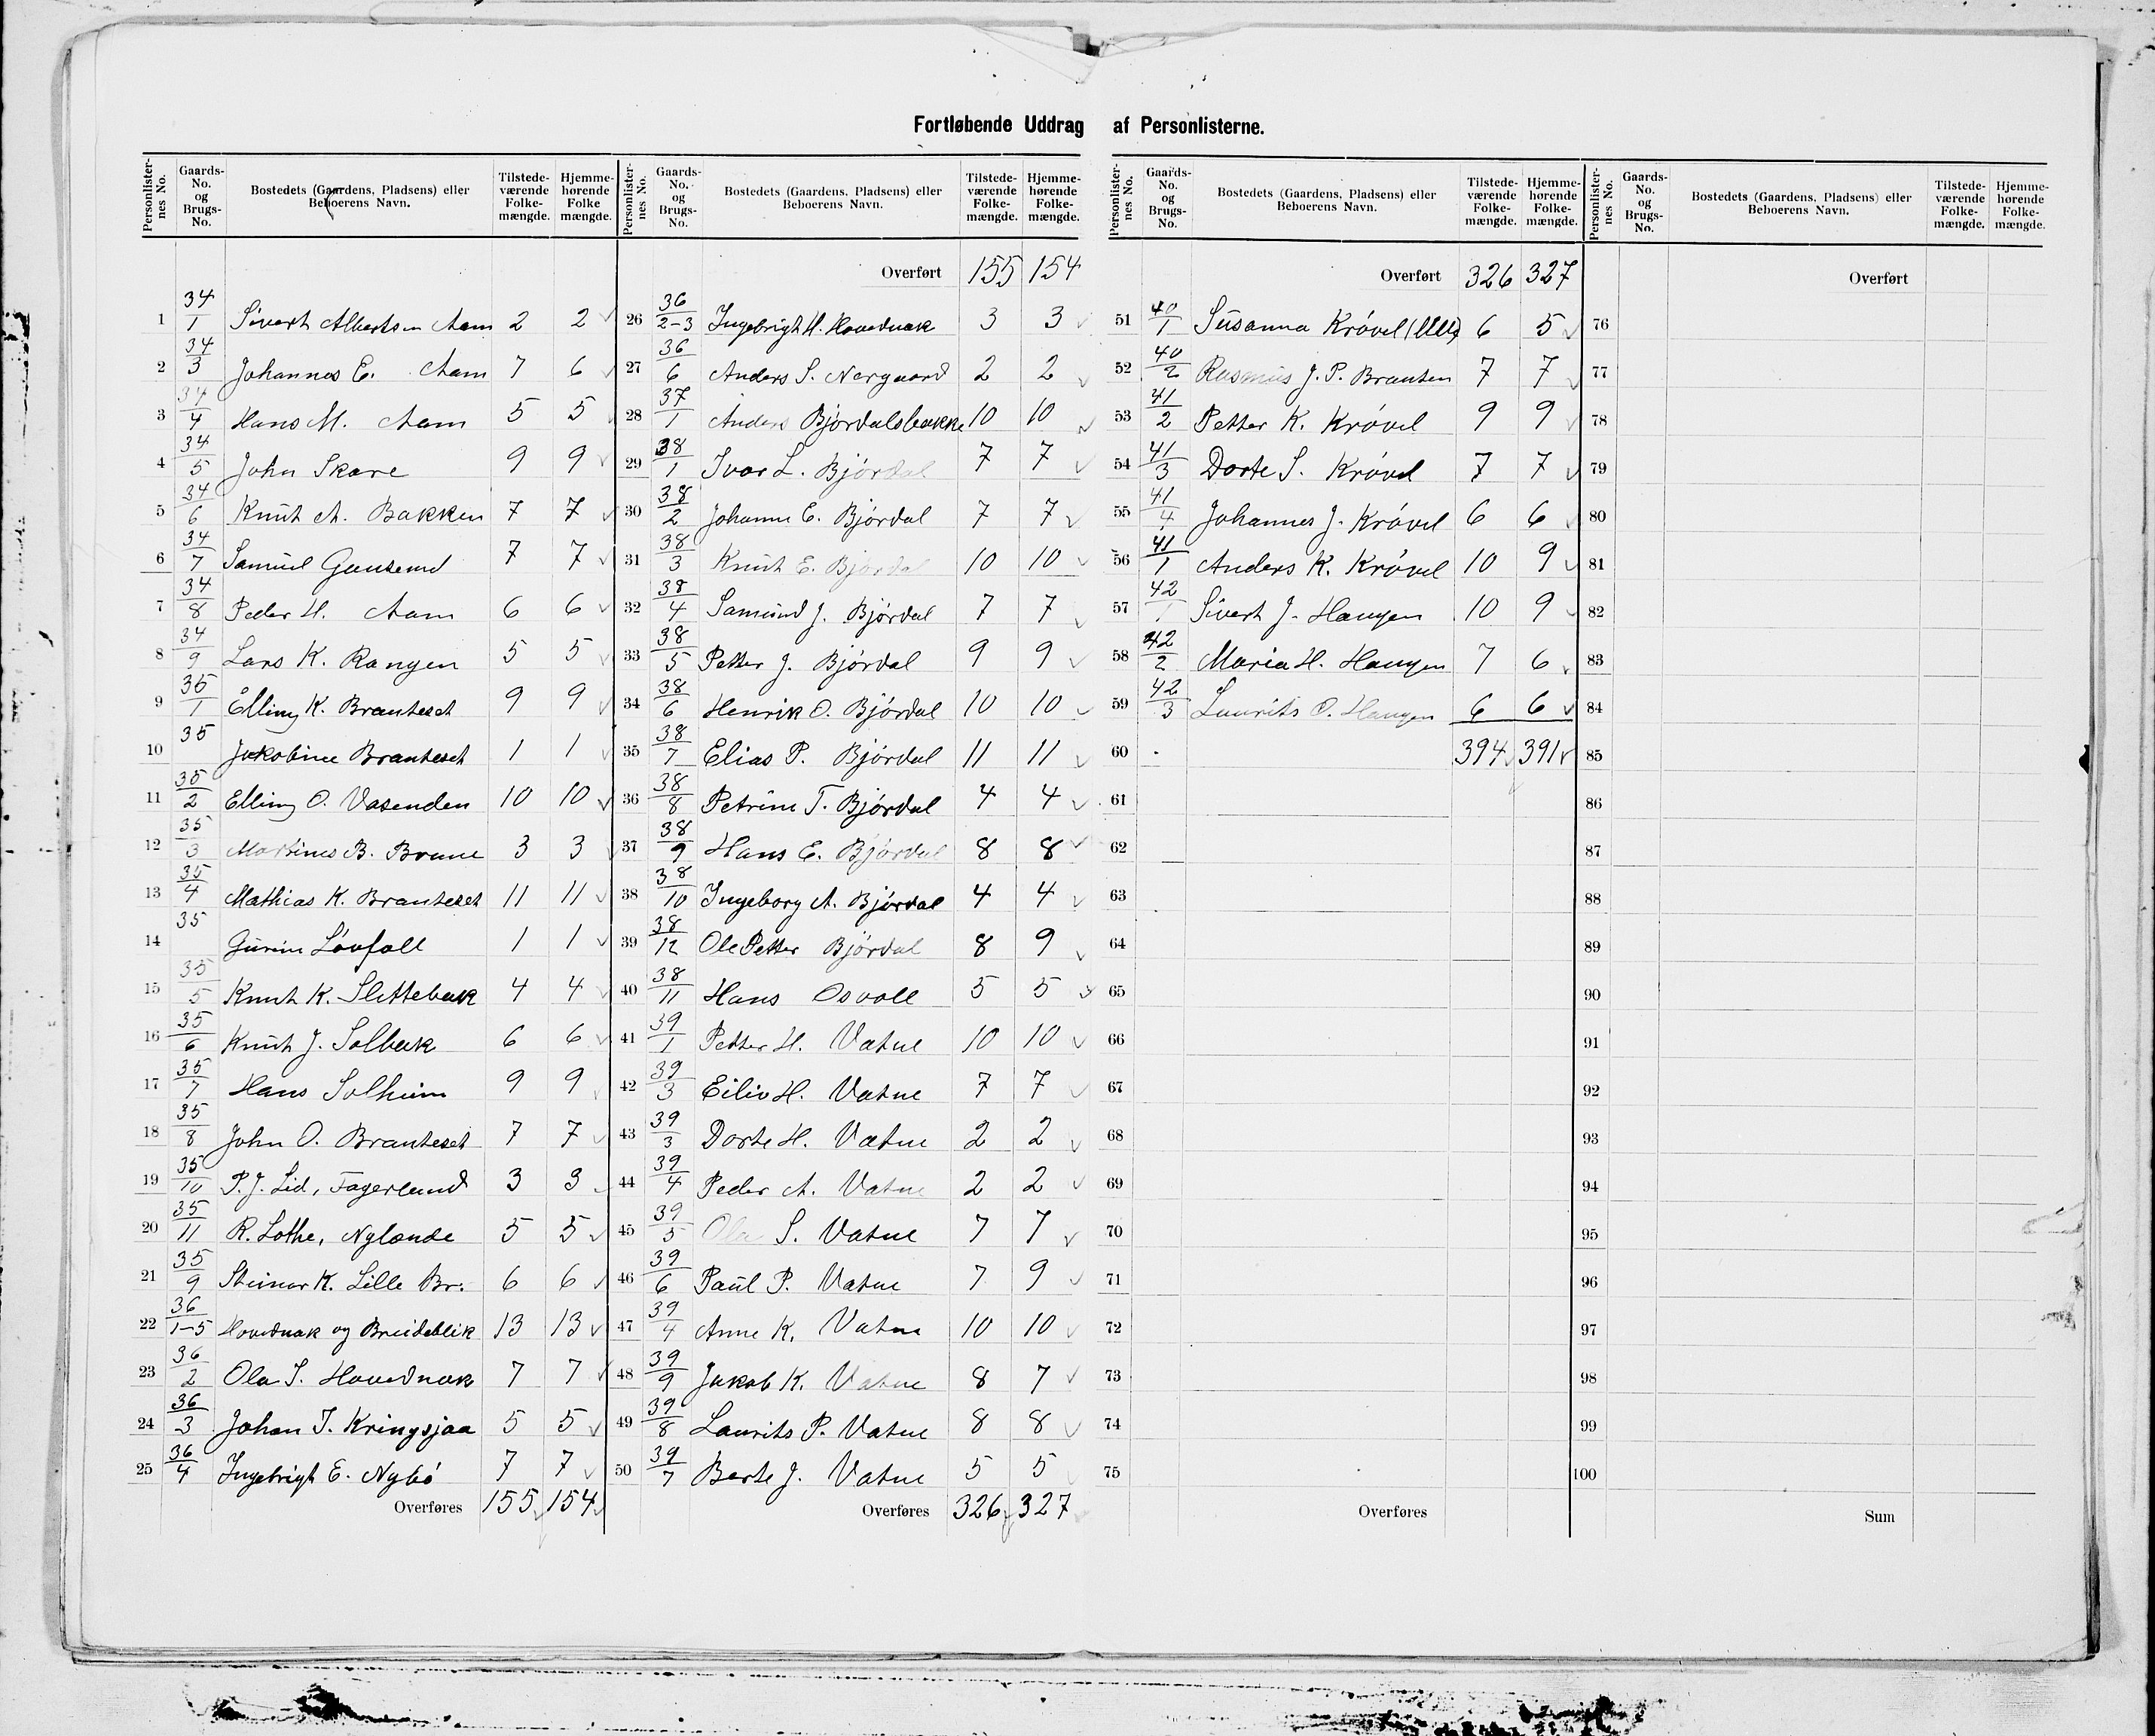 Fortløbende Uddrag af Personlisterne.
Personlisternes No. Gaards-No. og Brugs-No. Bostedets (Gaardens, Pladsens) eller Beboerens Navn. Tilstedeværende Folkemængde. Hjemmehørende Folkemængde.
1 34/1 Sivert Albertsen Aam 2 2
2 34/3 Johannes E. Aam 7 6
3 34/4 Hans M. Aam 5 5
4 34/5 John Skare 9 9
5 34/6 Knut A. Bakken 7 7
6 34/7 Samuel 7 7
7 34/8 Peder H. Aam 6 6
8 34/9 Lars K. Rangen 5 5
9 35/1 Elling K. Brauteset 9 9
10 35 Jakobine Brauteset 1 1
11 35/2 Elling O. Vasenden 10 10
12 35/3 Martinus B. Brune 3 3
13 35/4 Mathias K. Brauteset 11 11
14 35 Gurine Løvfall 1 1
15 35/5 Knut K. Slettebak 4 4
16 35/6 Knut J. Solbak 6 6
17 35/7 Hans Solheim 9 9
18 35/8 John O. Brauteset 7 7
19 35/10 P. J. Lid, Fagerlund 3 3
20 35/11 R. Lothe, Nylænde 5 5
21 35/9 Steinar K. Lille Br. 6 6
22 36/1-5 Hovednak og Breideblik 13 13
23 36/2 Ola I. Hovednak 7 7
24 36/3 Johan I. Kringsjaa 5 5
25 36/4 Ingebrigt E. Nybø 7 7
Overføres 155 154
Overført 155 154
26 36/2-3 Ingebrigt H. Hovednak 3 3
27 36/6 Anders S. Nergaard 2 2
28 37/1 Anders Bjørdalsbakke 10 10
29 38/1 Ivar L. Bjørdal 7 7
30 38/2 Johanne E. Bjørdal 7 7
31 38/3 Knut E. Bjørdal 10 10
32 38/4 Samund J. Bjørdal 7 7
33 38/5 Petter J. Bjørdal 9 9
34 38/6 Henrik O. Bjørdal 10 10
35 38/7 Elias P. Bjørdal 11 11
36 38/8 Petrine T. Bjørdal 4 4
37 38/9 Hans E. Bjørdal 8 8
38 38/10 Ingeborg A. Bjørdal 4 4
39 38/12 Ole Petter Bjørdal 8 9
40 38/11 Hans Osvoll 5 5
41 39/1 Petter H. Vatne 10 10
42 39/3 Eiliv H. Vatne 7 7
43 39/3 Dorte H. Vatne 2 2
44 39/4 Peder A. Vatne 2 2
45 39/5 Ola S. Vatne 7 7
46 39/6 Paul P. Vatne 7 9
47 39/4 Anne K. Vatne 10 10
48 39/9 Jakob K. Vatne 8 7
49 39/8 Laurits P. Vatne 8 8
50 39/7 Berte J. Vatne 5 5
Overføres 326 327
Personlisternes No. Gaards-No. og Brugs-No. Bostedets (Gaardens, Pladsens) eller Beboerens Navn. Tilstedeværende Folkemængde. Hjemmehørende Folkemængde.
Overført 326 327
51 40/1 Susanna Krøvel 6 5
52 40/2 Rasmus J. P. Brauten 7 7
53 41/2 Petter K. Krøvel 9 9
54 41/3 Dorte S. Krøvel 7 7
55 41/4 Johannes J. Krøvel 6 6
56 41/1 Anders K. Krøvel 10 9
57 42/1 Sivert J. Haugen 10 9
58 42/2 Maria H. Haugen 7 6
59 42/3 Laurits O. Haugen 6 6
60 394 391
61
62
63
64
65
66
67
68
69
70
71
72
73
74
75
Overføres
Overført
76
77
78
79
80
81
82
83
84
85
86
87
88
89
90
91
92
93
94
95
96
97
98
99
100
Sum